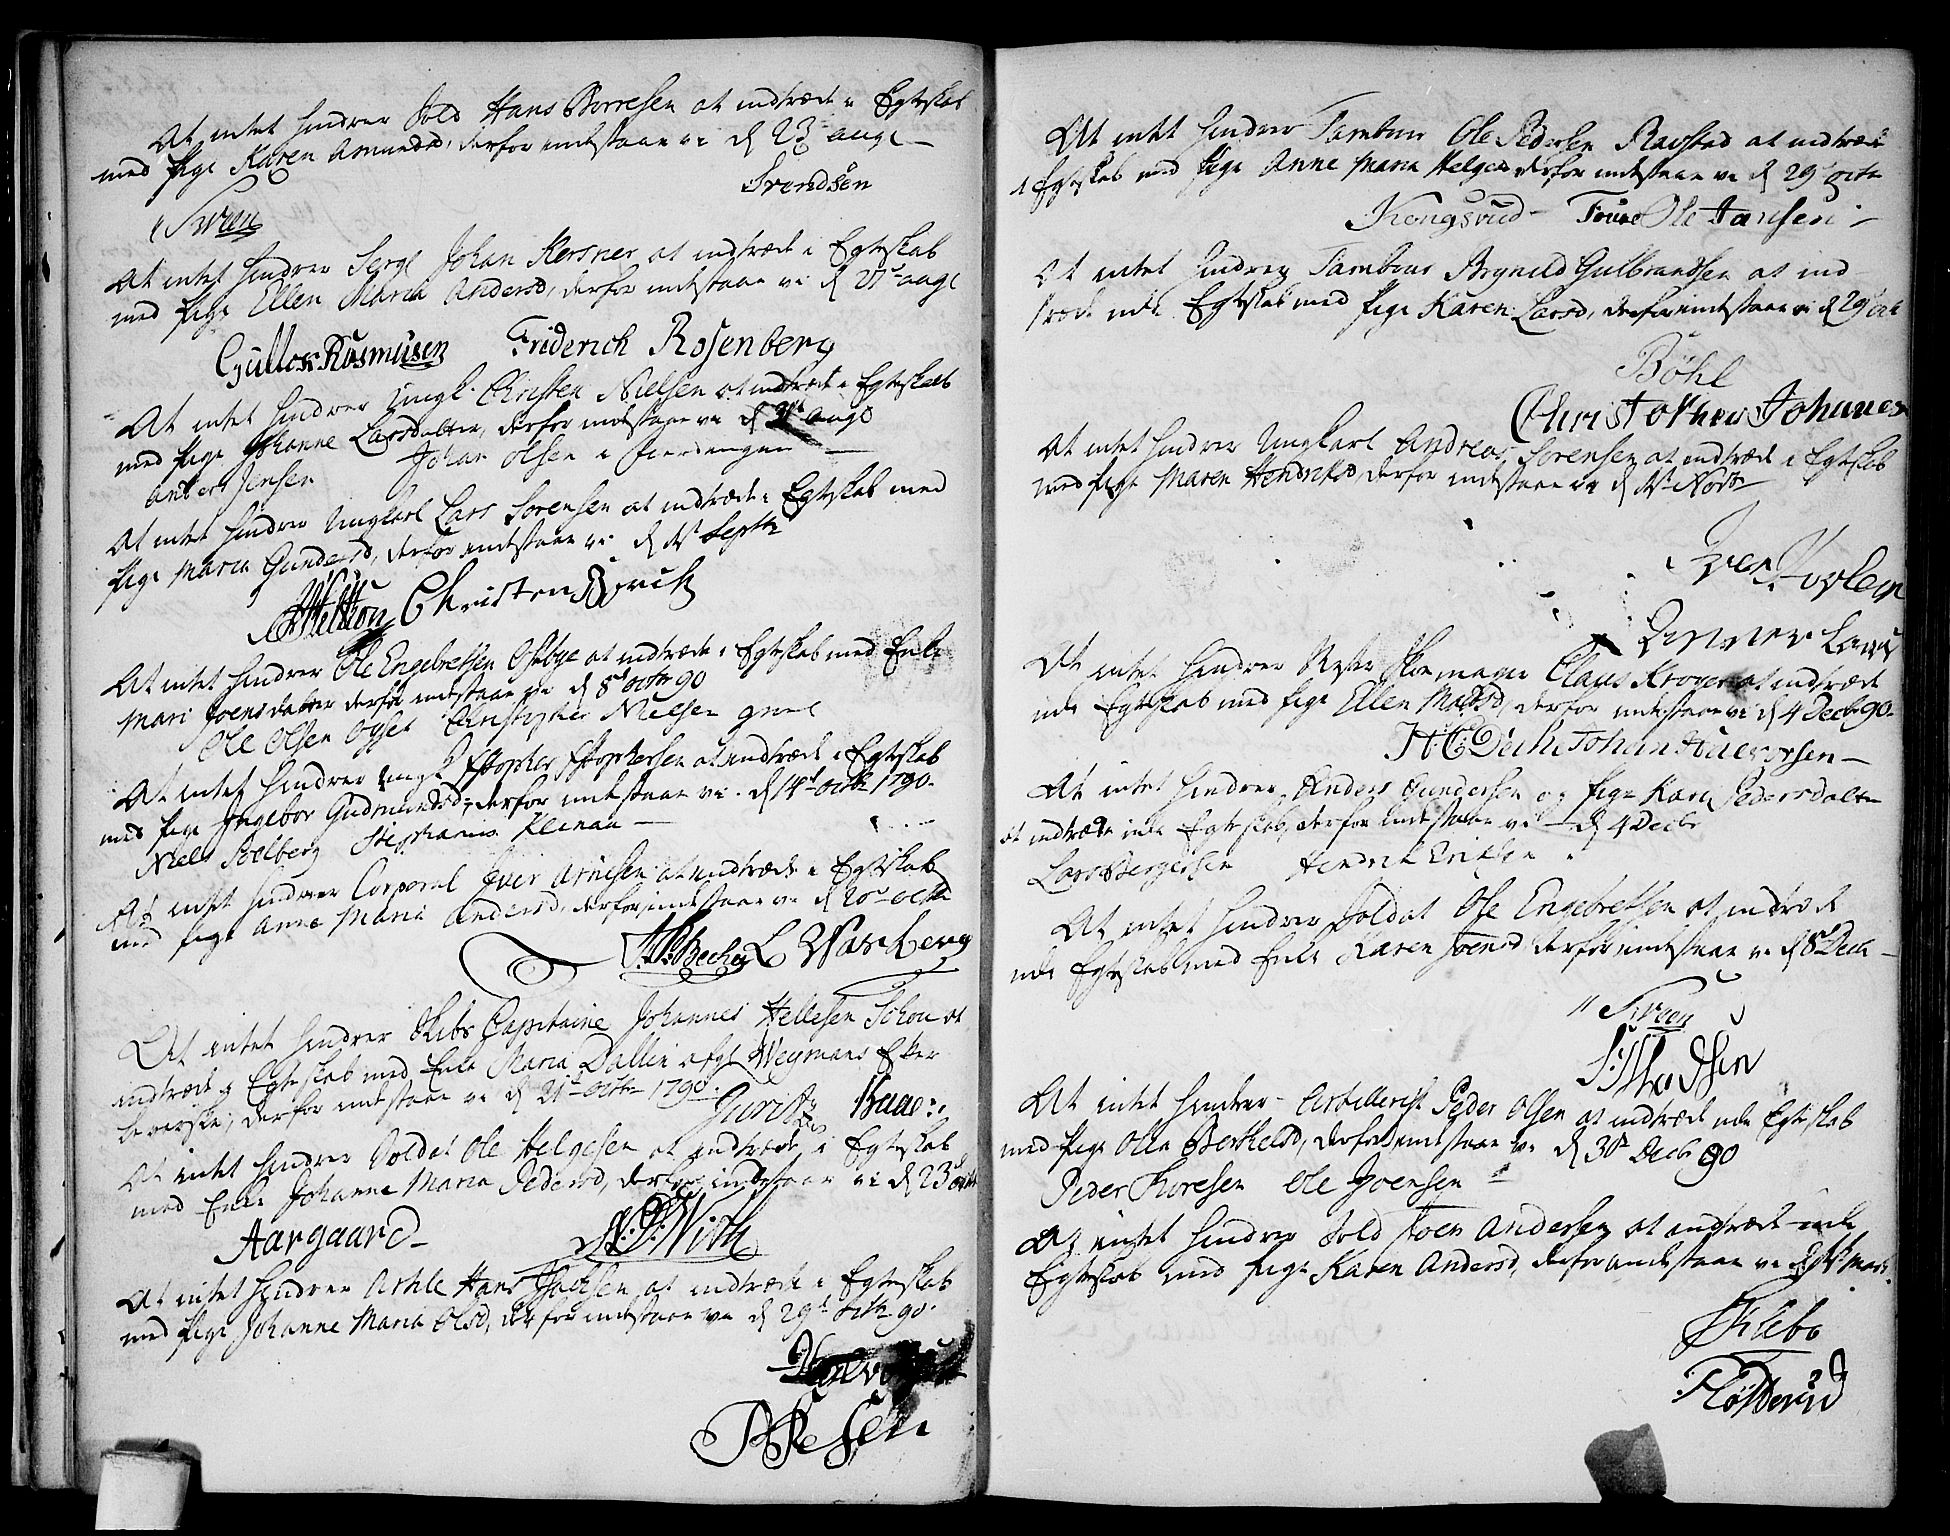 At intet hindrer Sold Hans Borresen at indtræde i Egteskab
med Pige Karen Amundsd, derfor indestaae vi d 23 augs
Svendsen
Sveen
At intet hindrer Sergt Johan Kersner at indtræde i Egteskab
med Pige Ellen Maria Andersd, derfor indestaae vi d 27 augs
Gullos Rasmusen Friderich Rosenberg
At intet hindrer ungk. Christen Nielsen at indtræde i Egteskab
med Pige Johanne Larsdatter, derfor indestaae vi d aug
Johan Olsen i Fierdingen
Jensen
At intet hindrer Ungkarl Lars Sorensen at indtræde i Egteskab med
Pige Maria Gundersd, derfor indestaae vi d Septbr
Christen
At intet hindrer Ole Engebretsen Opsbye at indtræde i Egteskab med Enke
Mari Joensdatter derfor indestaae vi d 8de octbr 90
Ole Olsen Christopher Nielsen
At intet hindrer ungk at indtræde i Egteskab
med Pige Ingebor Gudmundsd, derfor indestaae vi. d 14d octbr 1790.
Niels Solberg Stephanus Kleinau
At intet hindrer Corporal Iver Arnesen at indtræde i Egteskab
med Pige Anne Maria Andersd, derfor indestaae vi d 20de octbr
Becher L Warberg
At intet hindrer Skibs Capitaine Johannes Hellesen Schou at
indtræde i Egteskab med Enke Maria Dallin afgl Weymans Efter
leverske, derfor indestaae vi d 21d octbr 1790.
Baae
At intet hindrer Soldat Ole Helgesen at indtræde i Egteskab
med Enke Johanne Maria Pedersd, derfor indestaae vi d 23 octbr
Aargaard With
At intet hindrer Hans Isachsen at indtræde i Egteskab
med Pige Johanne Maria Olsd, derfor indestaae vi d 29d octbr 90.
At intet hindrer Tambour Ole Pedersen Ravstad at indtræde
i Egteskab med Pige Anne Maria Helgesd derfor indestaae vi d 29 octbr
Kongsrud Ole Hansen
At intet hindrer Tambour Brynild Gulbrandsen at ind
træde udi Egteskab med Pige Karen Larsd, derfor indestaae vi d 29 octb
Böhl
Christopher Johanes
At intet hindrer Ungkarl Andreas Sorensen at indtræde i Egteskab
med Pige Maren Hendriksd derfor indestaae vi d Novbr
Iver
Lars
At intet hindrer Mester Skoemager Claus Kroyer at indtræde
udi Egteskab med Pige Ellen Madsd, derfor indestaae vi d 4 Decbr 90.
Johan
At intet hindrer Anders Gundersen og Pige Kari Pedersdatter
at indtræde inde Egteskab, derfor indestaae vi d 4 Decbr
Lars Bergersen Hendrik Eriksen
At intet hindrer Soldat Ole Engebretsen at indtræde
udi Egteskab med Enke Karen Joensd derfor indestaae vi d 8de Decbr
Sveen
Madsen
At intet hindrer Artillerist Peder Olsen at indtræde udi Egteskab
med Pige Olia Bertholsd, derfor indestaae vi d 30 Decbr 90
Peder Thoresen Ole Joensen
At intet hindrer Sold Joen Andersen at indtræde inde
Egteskab med Pige Karen Andersd, derfor indestaae vi d Marti.
Klebo
Flotterud